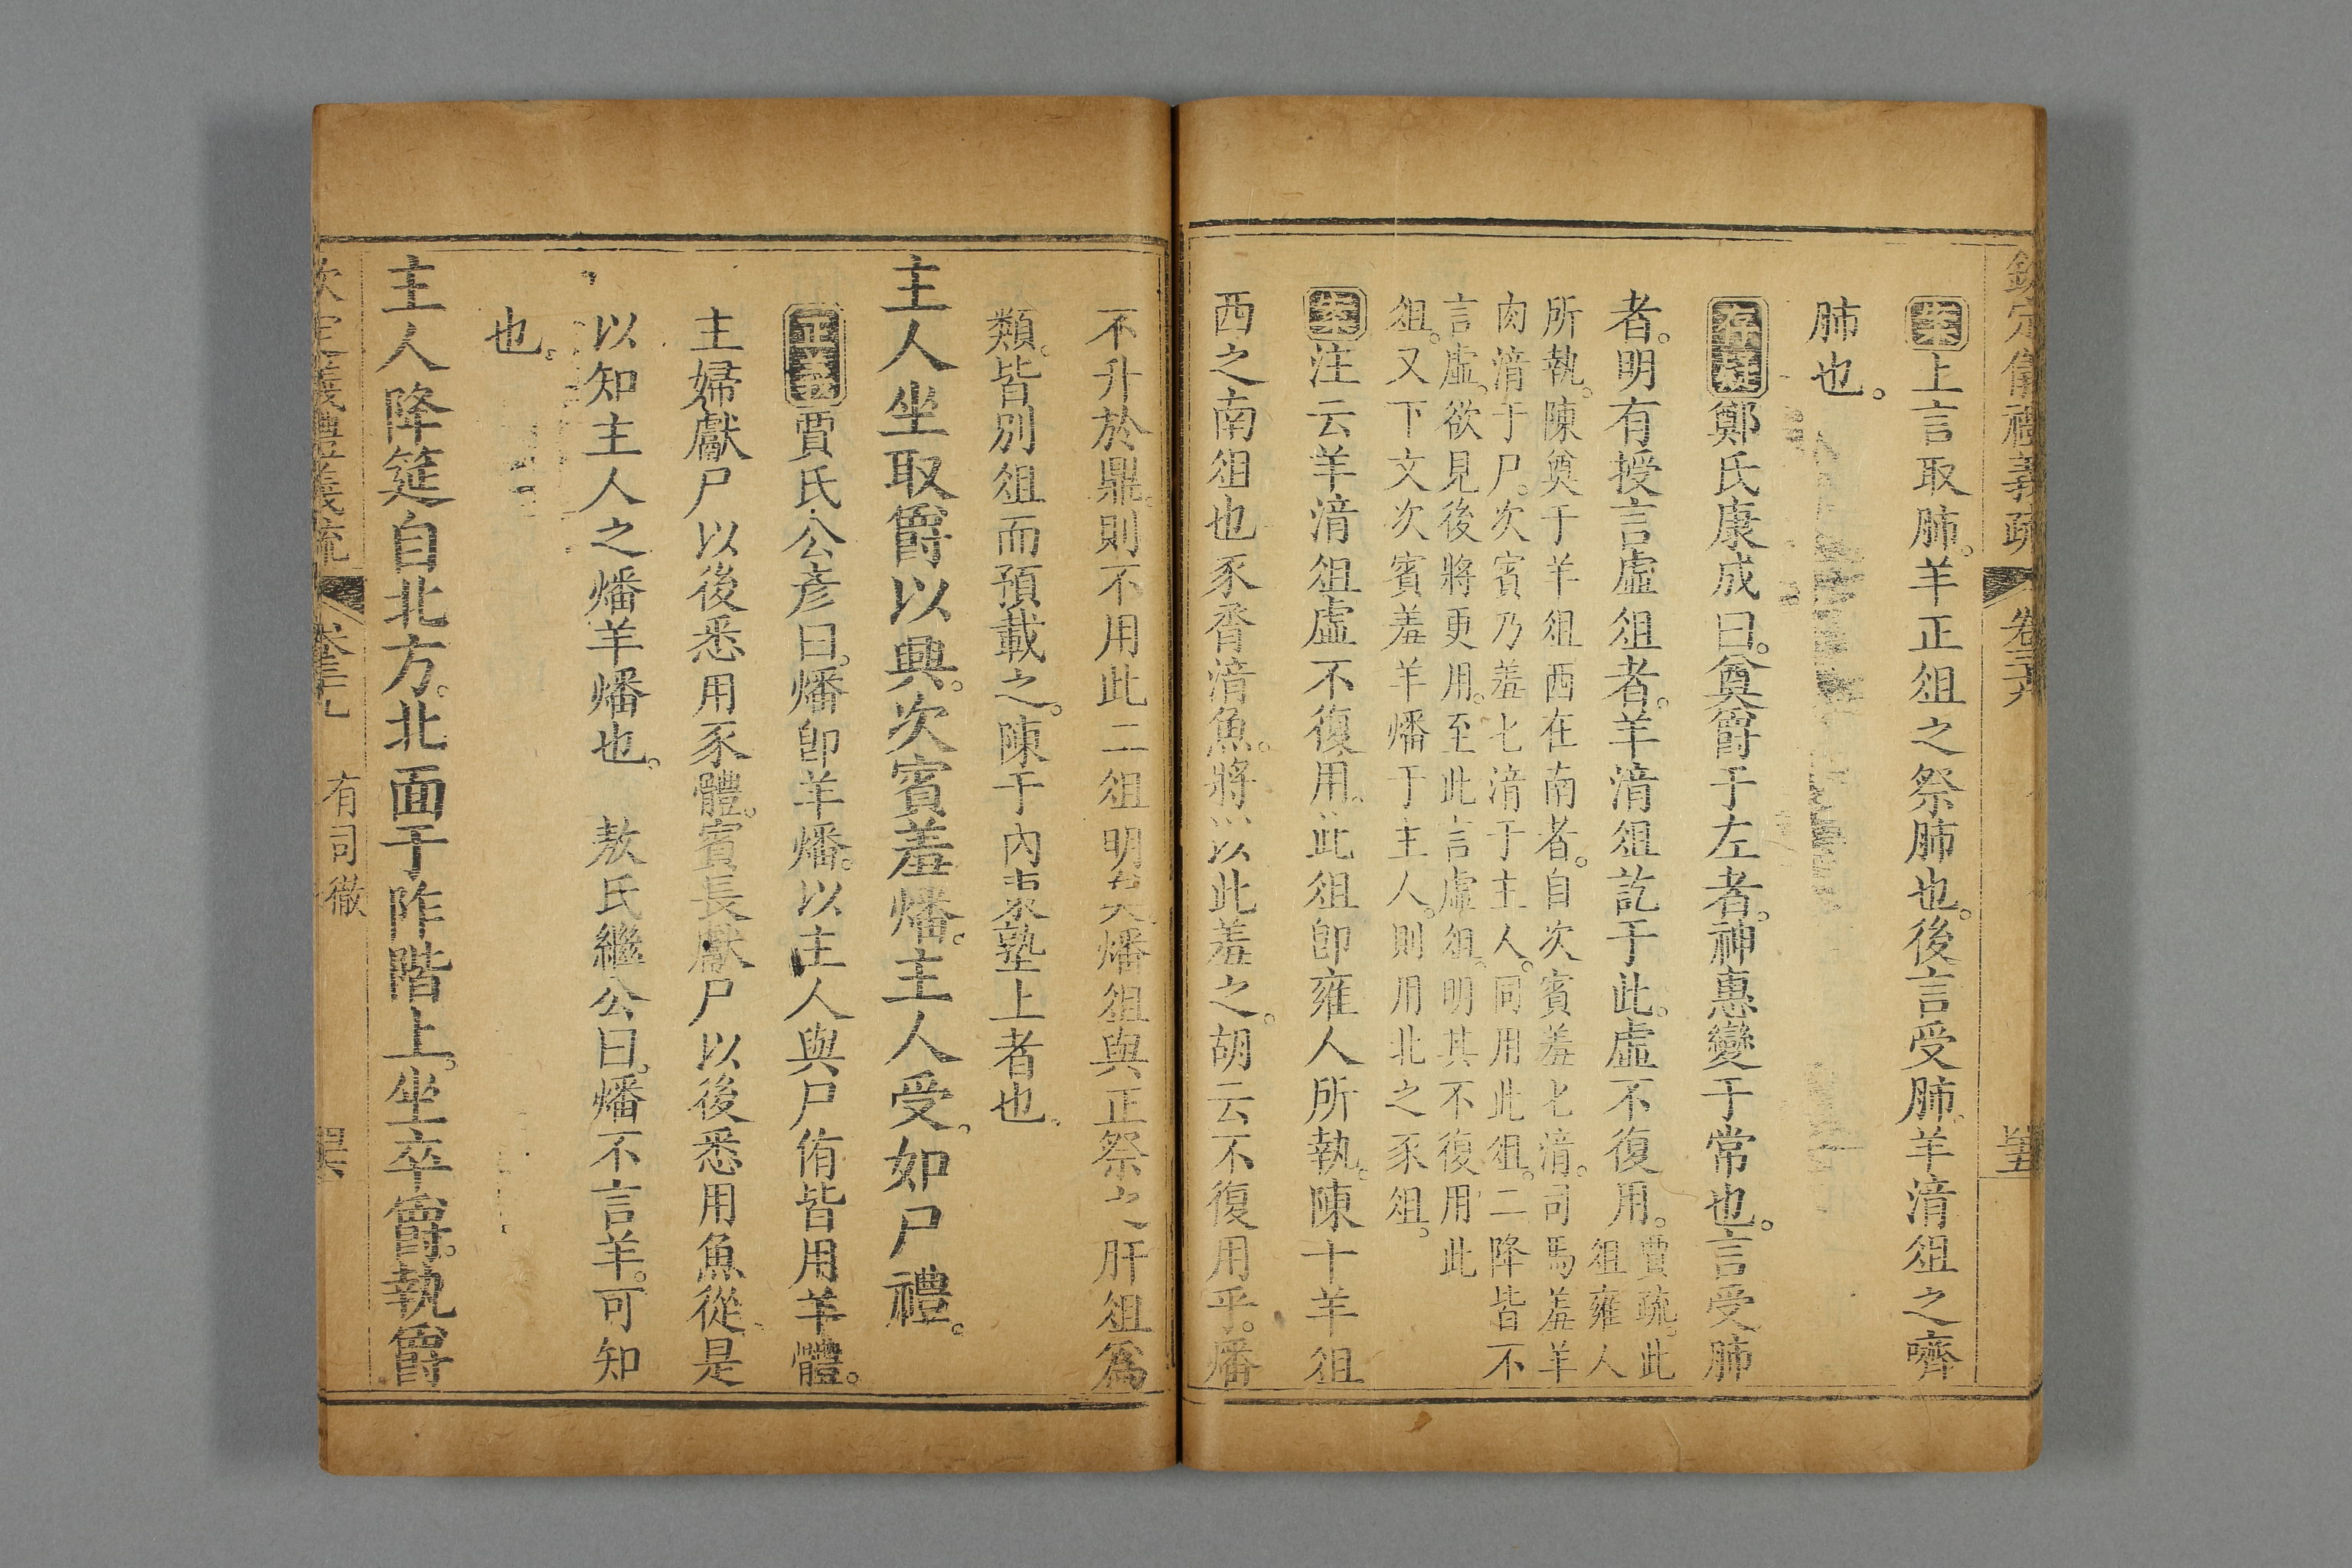 欽定儀禮義疏 卷三十八
案上言取肺。羊正俎之祭肺也。後言受肺。羊湆俎之嚌
肺也。
存疑鄭氏康成曰。奠爵于左者。神惠變于常也。言受肺
者。明有授言虛俎者。羊湆俎訖于此。虛不復用。賈疏。此
俎雍人
所執。陳奠于羊俎西在南者。自次賓羞匕湆。司馬羞羊
肉湆于尸。次賓乃羞匕湆于主人。同用此俎。二降皆不
言虛。欲見後將更用。至此言虛俎。明其不復用此
俎。又下文次賓羞羊燔于主人。則用北之豕俎。
案注云羊湆俎虛不復用。此俎卽雍人所執。陳于羊俎
西之南俎也豕胥湆魚。將以此羞之。胡云不復用乎。燔
不升於鼎。則不用此二俎明矣。燔俎與正祭之肝俎爲
類。皆別俎而預載之。陳于內東塾上者也。
主人坐取爵以興。次賓羞燔。主人受。如尸禮。
正義賈氏公彥曰。燔卽羊燔。以主人與尸侑皆用羊體。
主婦獻尸以後悉用豕體。賓長獻尸以後悉用魚從是
以知主人之燔羊燔也。 敖氏繼公曰。燔不言羊。可知
也。
主人降筵自北方。北面于阼階上。坐卒爵。執爵
欽定儀禮義疏 有司徹